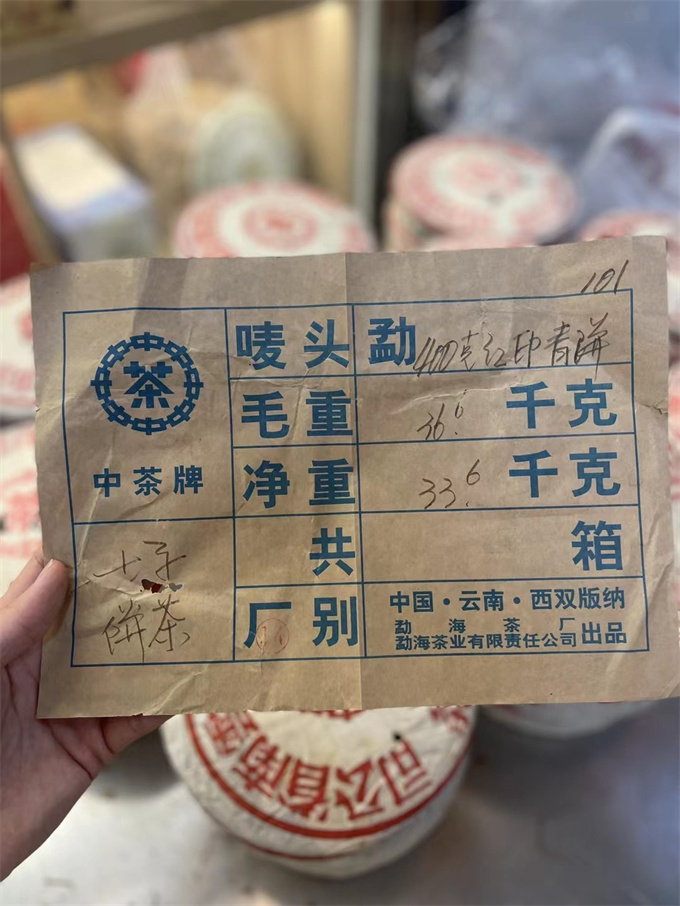 101
茶
中茶牌
唛头 勐400克红印青饼
毛重 36.6 千克
净重 33.6 千克
共 箱
七子
饼茶
厂别
中国·云南·西双版纳
勐海茶厂
勐海茶业有限责任公司出品
司公省南雲